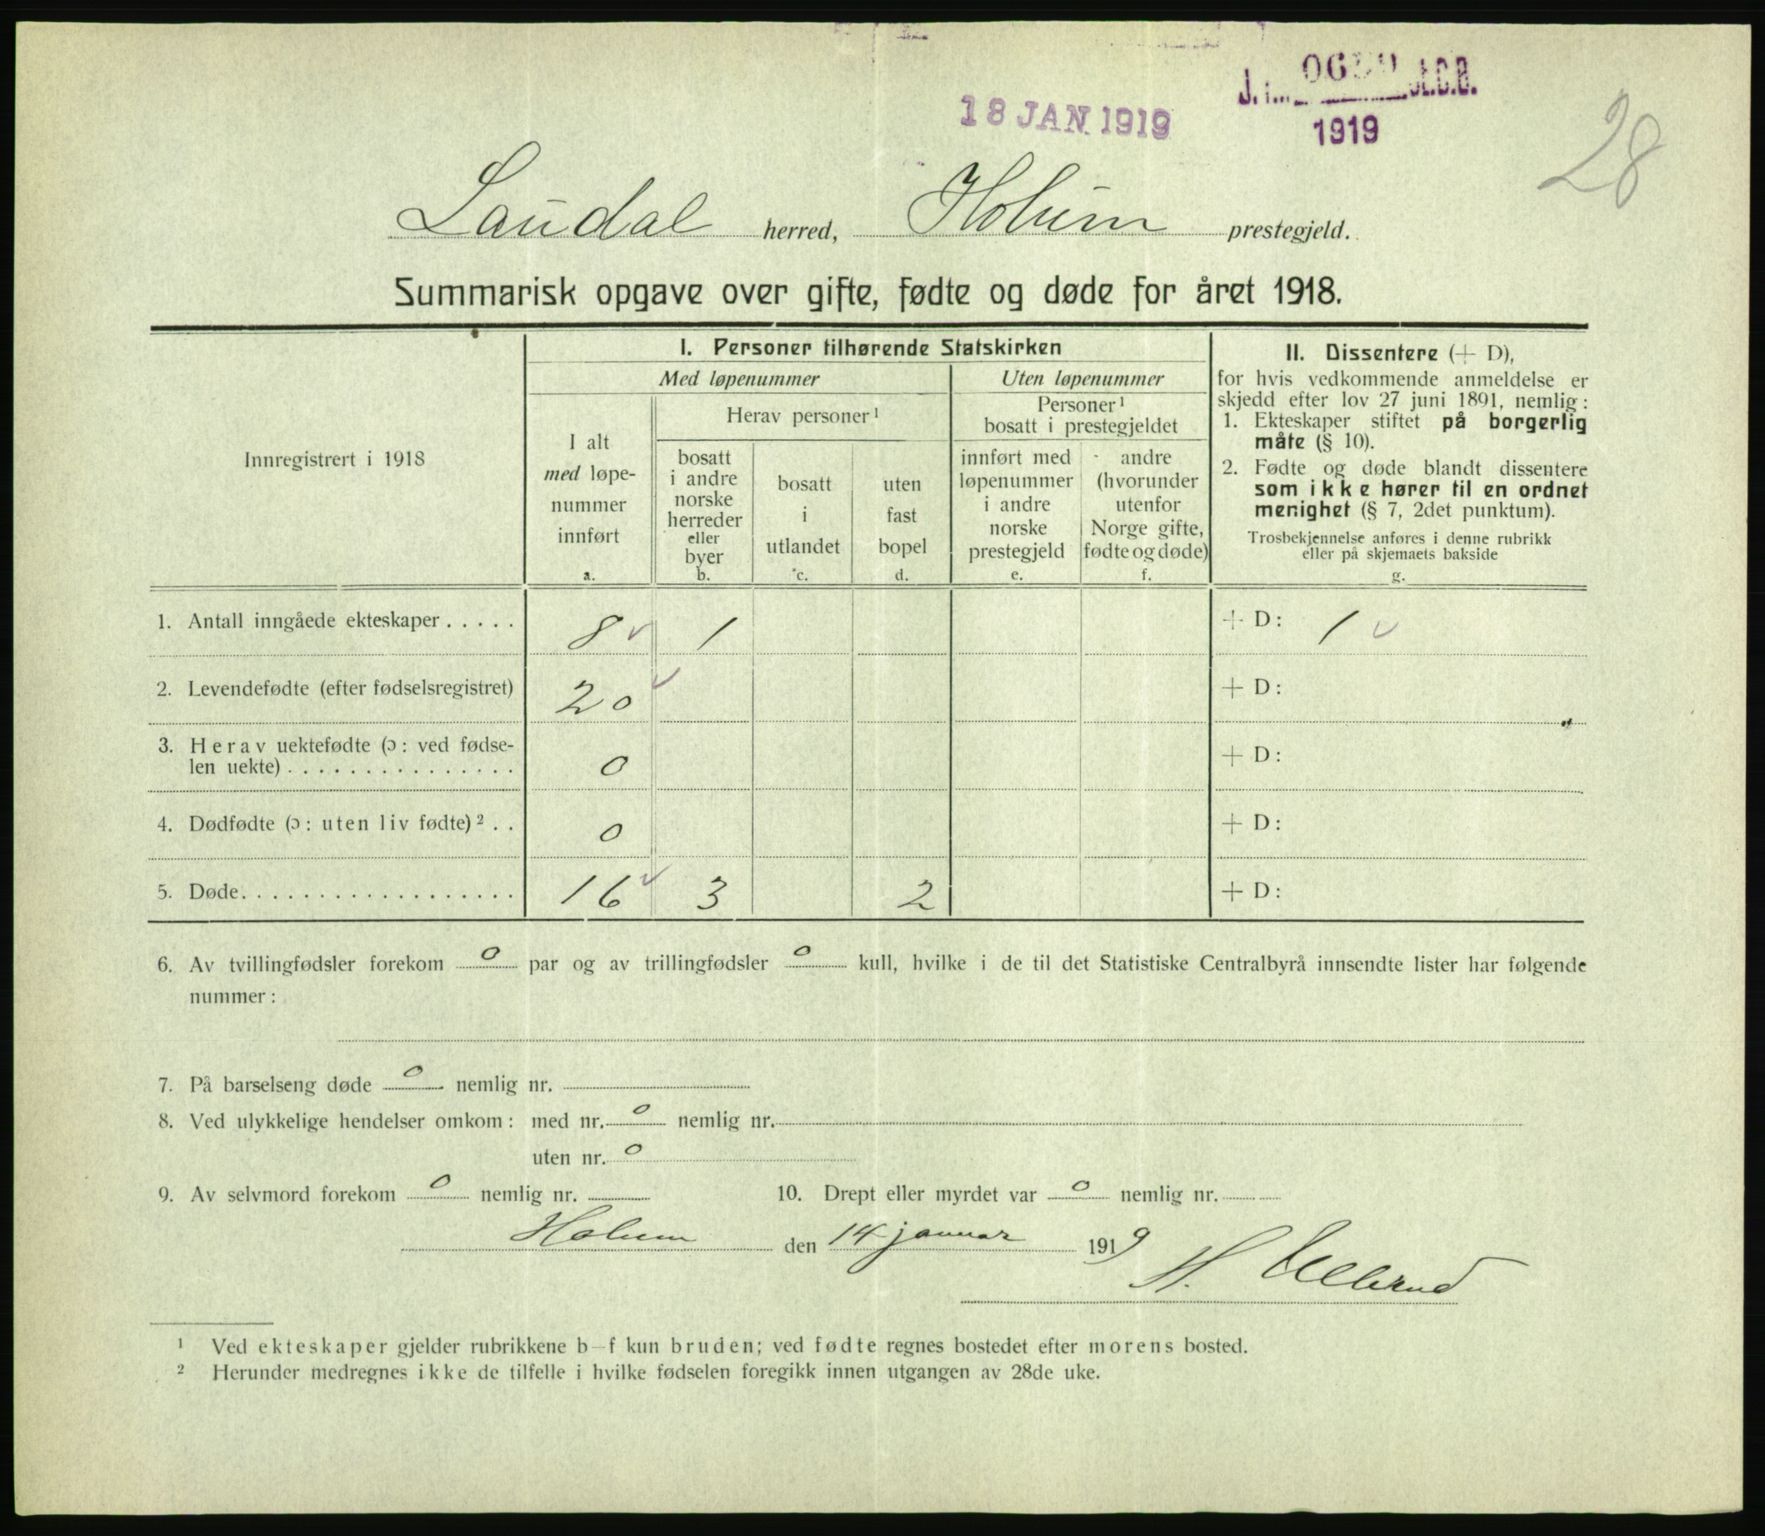 18 JAN 1919
1919
28
Laudal herred, Holum prestegjeld.
Summarisk opgave over gifte, fødte og døde for året 1918.
Innregistrert i 1918
I. Personer tilhørende Statskirken
Med løpenummer
I alt
med løpe-
nummer
innført
a.
Herav personer ¹
bosatt
i andre
norske
herreder
eller
byer
b.
bosatt
i
utlandet
c.
uten
fast
bopel
d.
Uten løpenummer
Personer ¹
bosatt i prestegjeldet
innført med
løpenummer
i andre
norske
prestegjeld
e.
andre
(hvorunder
utenfor
Norge gifte,
fødte og døde)
f.
II. Dissentere (+ D),
for hvis vedkommende anmeldelse er
skjedd efter lov 27 juni 1891, nemlig:
1. Ekteskaper stiftet på borgerlig
måte (§ 10).
2. Fødte og døde blandt dissentere
som ikke hører til en ordnet
menighet (§ 7, 2det punktum).
Trosbekjennelse anføres i denne rubrikk
eller på skjemaets bakside
g.
1. Antall inngåede ekteskaper ..... 8 ✓ 1 + D: 1 ✓
2. Levendefødte (efter fødselsregistret) 20 ✓ + D:
3. Herav uektefødte (ɔ: ved fødse-
len uekte) ............... 0 + D:
4. Dødfødte (ɔ: uten liv fødte) ² .. 0 + D:
5. Døde .................. 16 ✓ 3 2 + D:
6. Av tvillingfødsler forekom 0 par og av trillingfødsler 0 kull, hvilke i de til det Statistiske Centralbyrå innsendte lister har følgende
nummer:
7. På barselseng døde 0 nemlig nr.
8. Ved ulykkelige hendelser omkom: med nr. 0 nemlig nr.
uten nr. 0
9. Av selvmord forekom 0 nemlig nr. 10. Drept eller myrdet var 0 nemlig nr.
Holum den 14 januar 1919
H.
¹ Ved ekteskaper gjelder rubrikkene b–f kun bruden; ved fødte regnes bostedet efter morens bosted.
² Herunder medregnes ikke de tilfelle i hvilke fødselen foregikk innen utgangen av 28de uke.